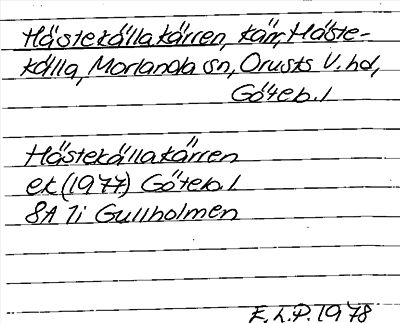 Hästekällakärren, kärr, Häste-
källa, Morlanda sn, Orusts V. hd,
Göteb. l
Hästekällakärren
ek (1977) Göteb. l
8A 7i Gullholmen
E. L. P. 1978